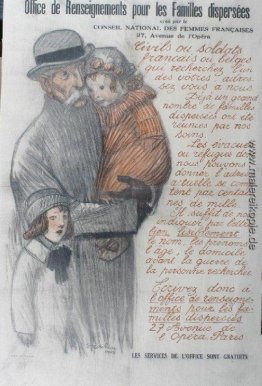 Office de Renseignements pour les Familles dispersées
créé par le
CONSEIL NATIONAL DES FEMMES FRANÇAISES
27, Avenue de l'Opéra
Civils ou soldats
français ou belges
qui recherchez l'un
des vôtres, adres
sez vous a nous
Déjà un grand
nombre de familles
dispersées ont
été réunies par nos
soins.
Les évacués
ou réfugiés dont
nous pouvons
donner l'adresse
actuelle se comp
tent par centaines
de mille
Il suffit de nous
indiquer par lettre
bien lisiblement
le nom, les prénoms
l'age, le domicile
avant la guerre de
la personne recherchée
Ecrivez donc a
l'office de renseigne-
ments pour les fa-
milles dispersées
27 Avenue de
l'Opera Paris
LES SERVICES DE L'OFFICE SONT GRATUITS
www.malereikopie.de